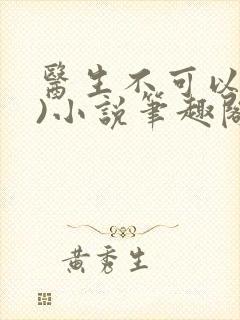 醫生不可以
)小説筆趣閣
黃秀生